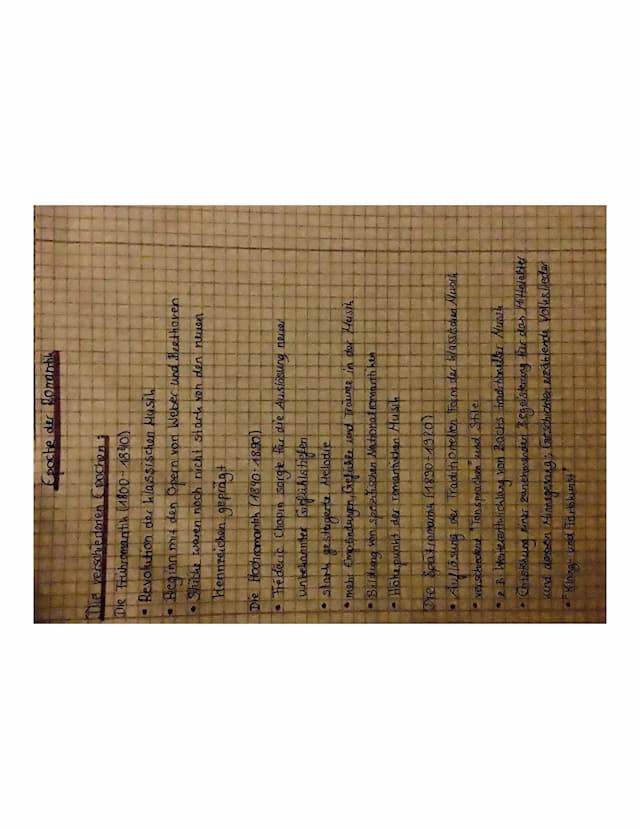 Epoche der Romantik
Die verschiedenen Epochen:
Die Frühromantik (1800-1840)
• Revolution der klassischen Musik
• Beginn mit den Opern von Weber und Beethoven
• Stücke waren noch nicht stark von den neuen
Kennzeichen geprägt
Die Hochromantik (1840-1890)
• Fréderic Chopin sorgte für die Auslösung neuer
unbekannter
• stark gesteigerte Melodie
• mehr Empfindungen, Gefühle und Träume in der Musik
• Bildung von spezifischen Nationalromantiken
• Höhepunkt der romantischen Musik
Die Spätromantik (1890-1920)
• Auflösung der Traditionellen Form der klassischen Musik
• verschiedene "Tonsprachen" und Stile
• z.B. Weiterentwicklung von Bachs traditioneller Musik
• Entstehung einer zunehmender Begeisterung für das Mittelalter
und dessen Minnegesang; Geschichten erzählende Volkslieder
• "Klang- und Farbkunst"